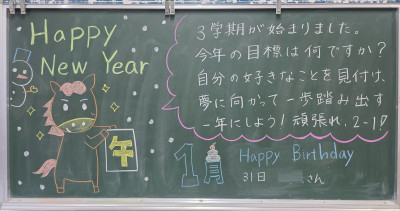 Happy
New Year
午
3学期が始まりました。
今年の目標は何ですか？
自分の好きなことを見付け、
夢に向かって一歩踏み出す
一年にしよう！頑張れ、2-1
1月 Happy Birthday
31日 さん